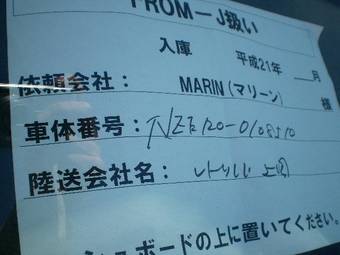 FROM-J扱い
入庫 平成21年 ___月
依頼会社: MARIN (マリーン) 様
車体番号: NZE120-0108510
陸送会社名:
ボードの上に置いてください。